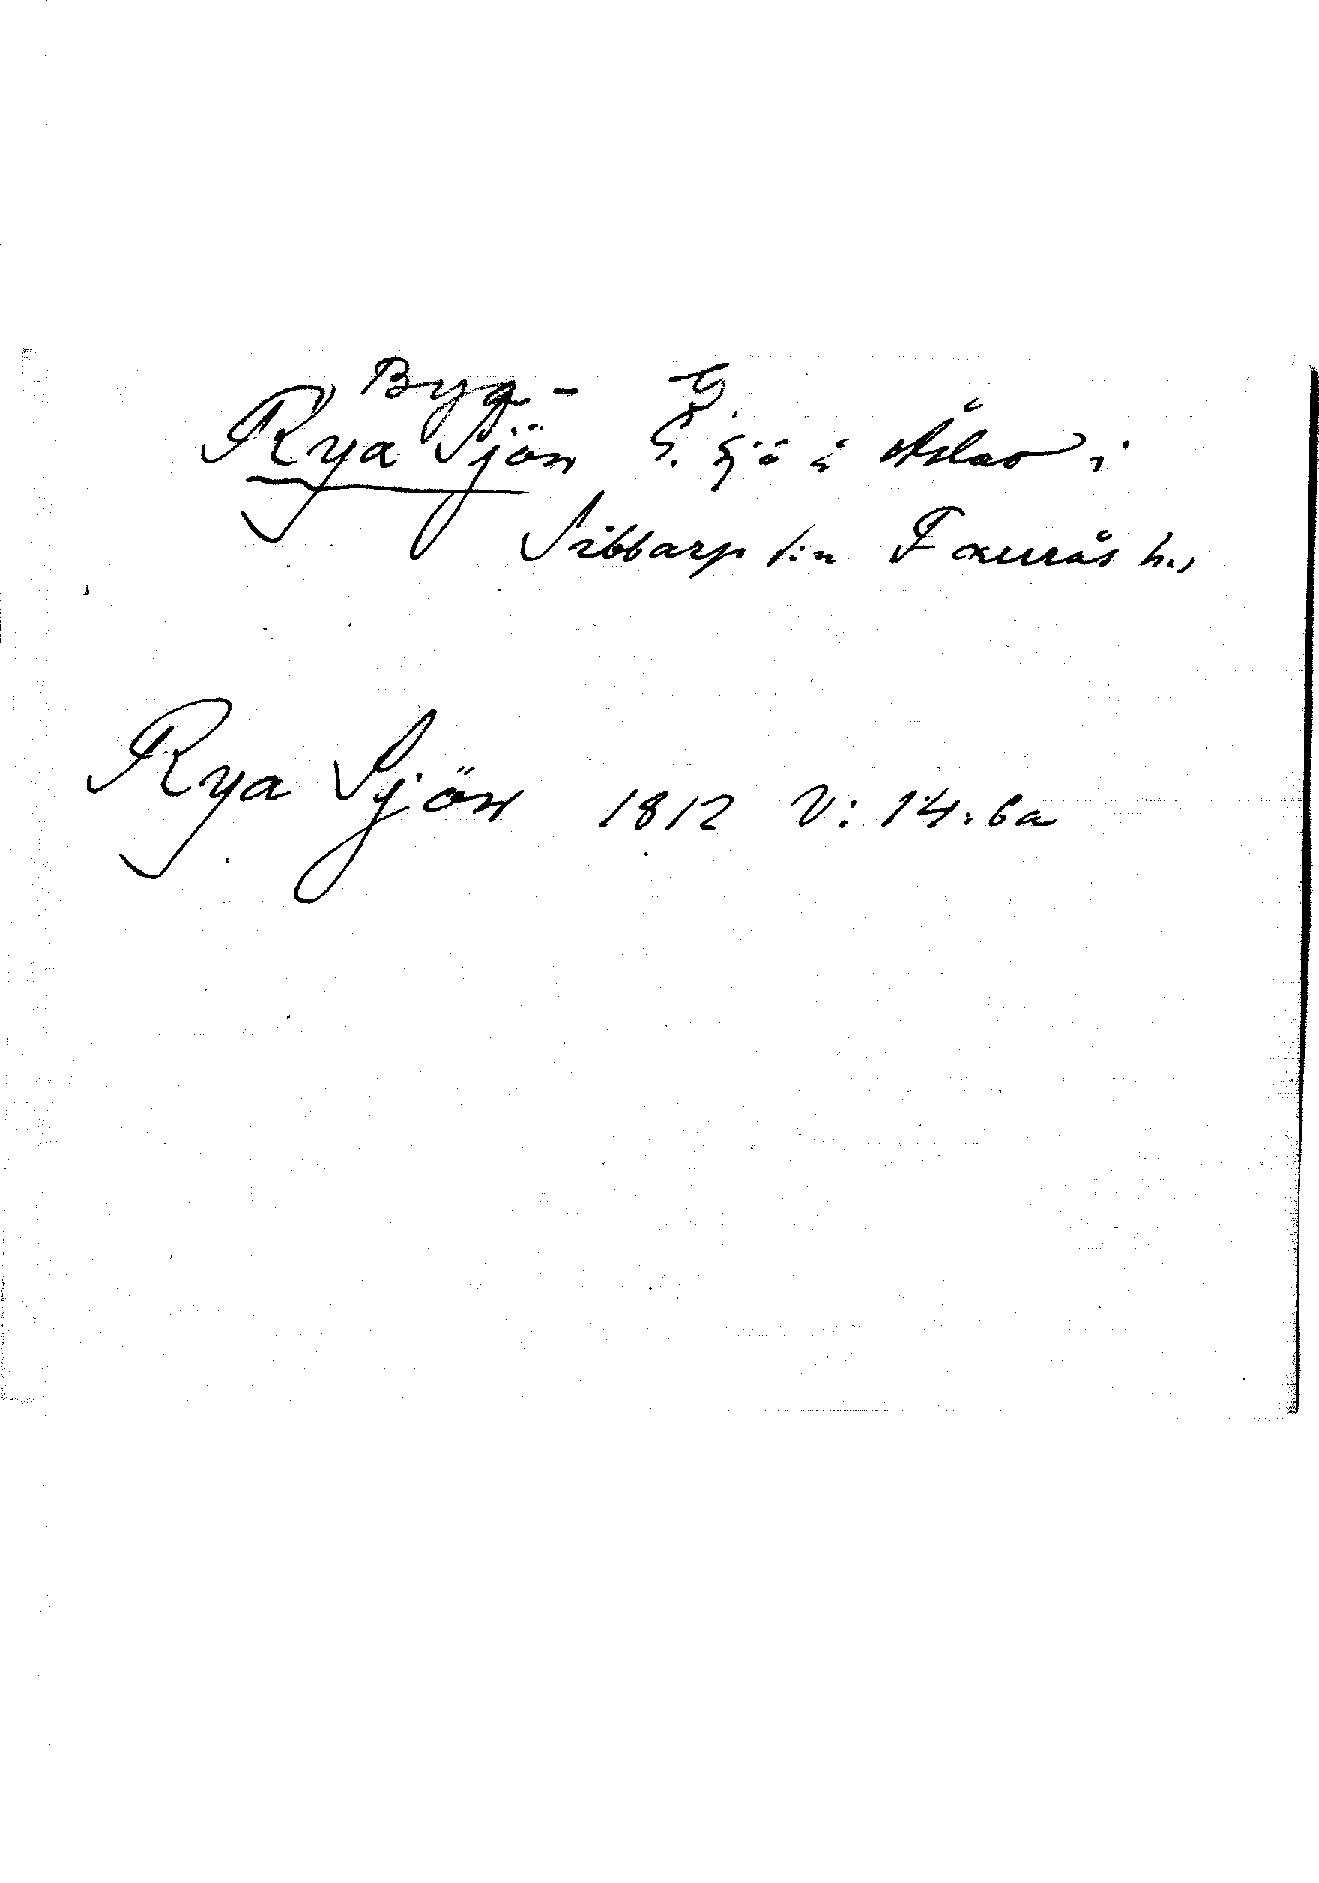 Bygg- G.
Rya Sjön G. Sjö i Åslav i
Sibbarp s:n Faurås h.,
Rya Sjön 1812 V: 14. 6a